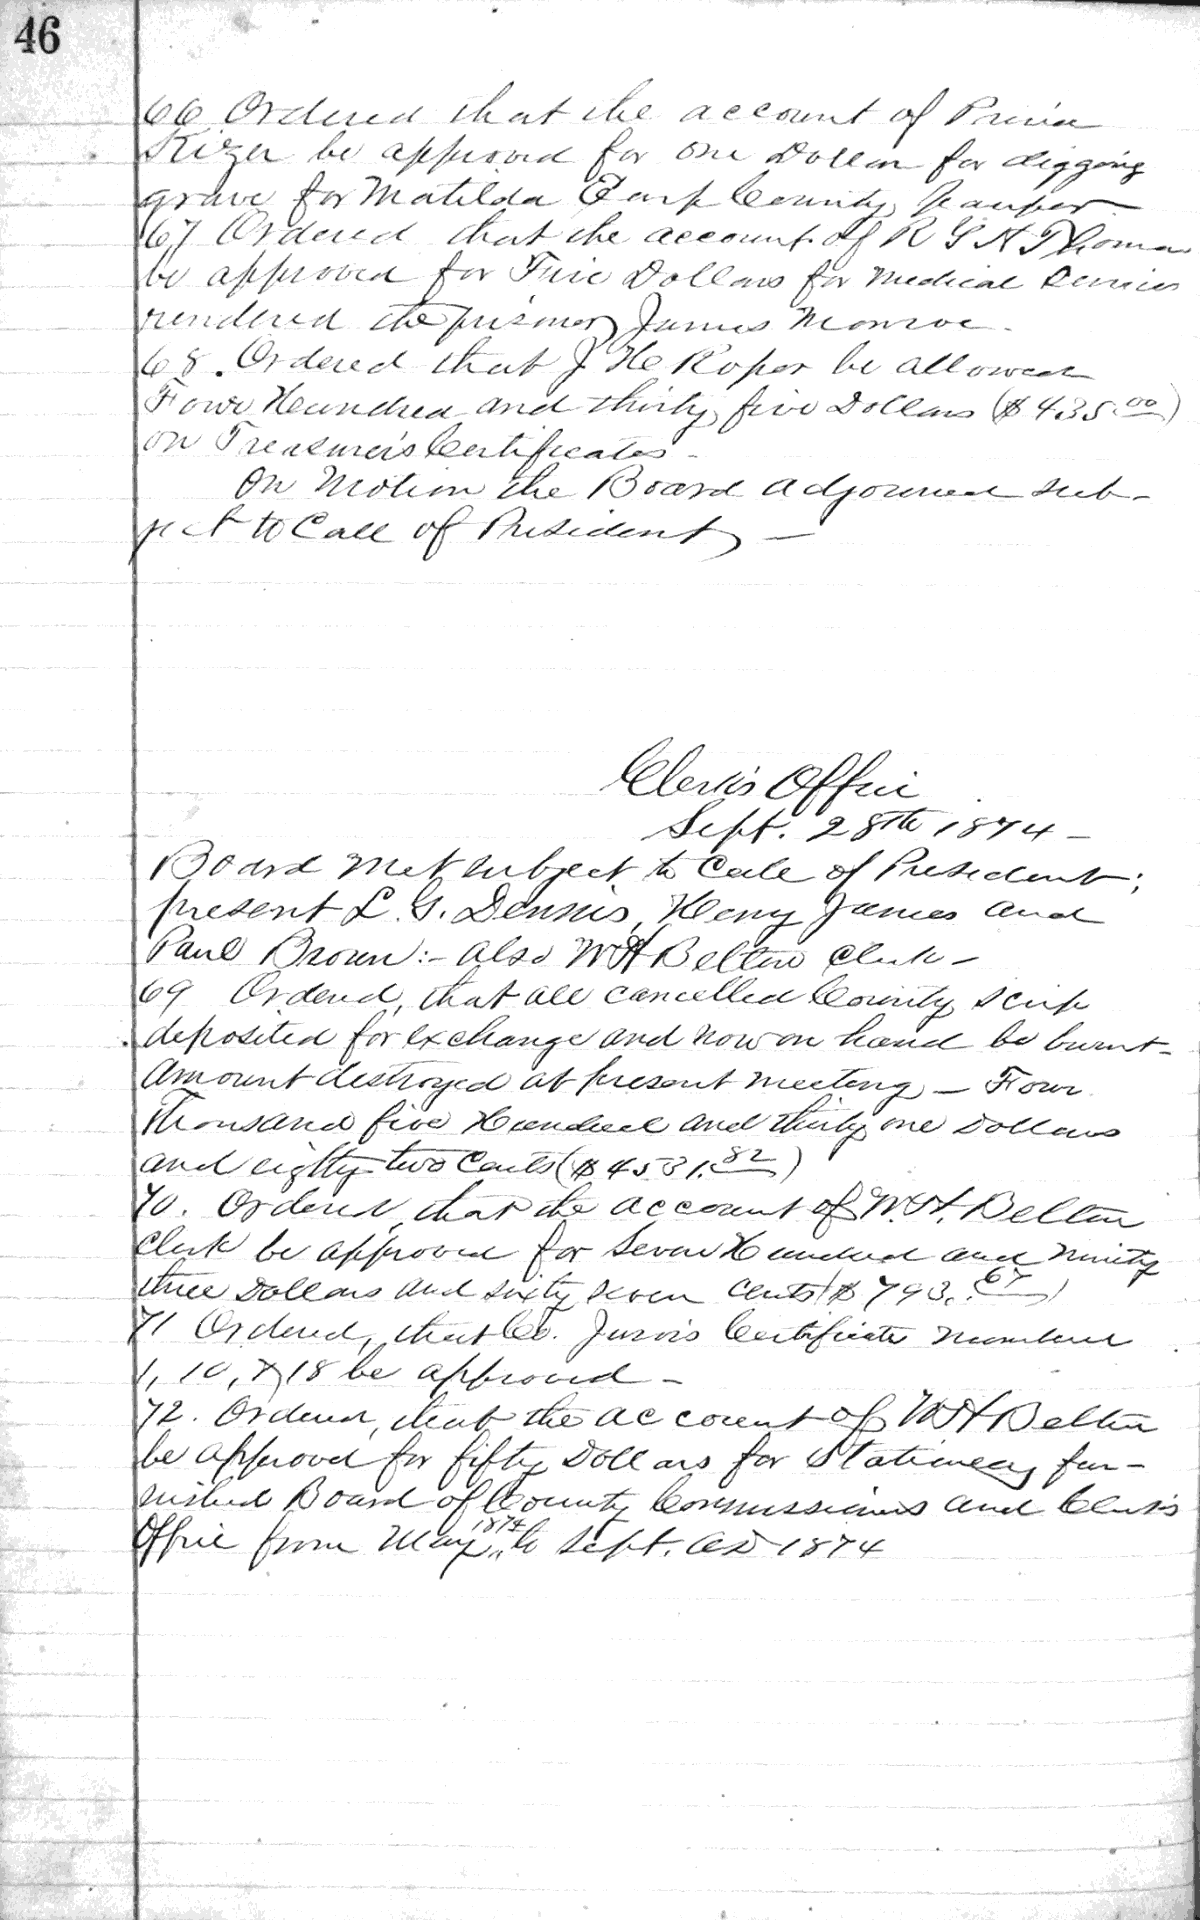 46
66 Ordered that the account of
Kizer be approved for one Dollar for digging
grave for Matilda Earp County Pauper
67 Ordered that the account of R G H Thomas
be approved for Five Dollars for Medical Services
rendered the prisoner James Monroe.
68. Ordered that J He Roper be allowed
Four Hundred and thirty five Dollars ($435.00)
on Treasurer's Certificates -
On Motion the Board adjourned sub-
ject to Call of President —
Clerk's Office
Sept. 28th 1874 -
Board met subject to Call of President;
present L. G. Dennis, Henry James and
Paul Brown :- also W H Belton Clerk -
69 Ordered, that all cancelled County Scrip
deposited for exchange and now on hand be burnt -
Amount destroyed at present meeting - Four
Thousand five Hundred and thirty one Dollars
and eighty two Cents ($4531.82)
70. Ordered, that the account of W. H. Belton
Clerk be approved for Seven Hundred and Ninety
three Dollars and sixty seven Cents ($793.67)
71 Ordered, that Co. Jurors Certificate numbers
1, 10, & 18 be approved -
72. Ordered, that the account of W H Belton
be approved for fifty Dollars for Stationery fur-
nished Board of County Commissioners and Clerk's
Office from May 1874 to Sept. AD 1874